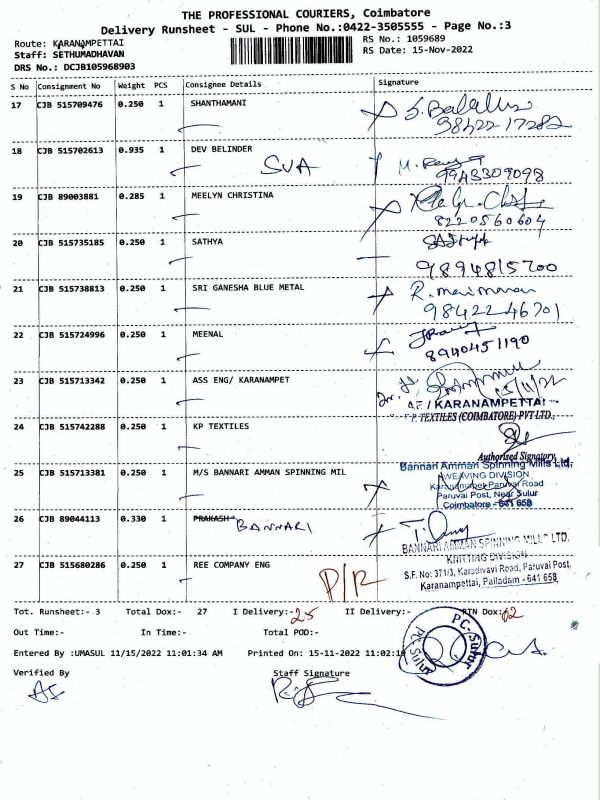 THE PROFESSIONAL COURIERS, Coimbatore
Delivery Runsheet - SUL - Phone No.:0422-3505555 - Page No.:3
Route: KARANAMPETTAI RS No.: 1059689
Staff: SETHUMADHAVAN RS Date: 15-Nov-2022
DRS No.: DCJB105968903
S No Consignment No Weight PCS Consignee Details Signature
17 CJB 515709476 0.250 1 SHANTHAMANI
98422-17282
18 CJB 515702613 0.935 1 DEV BELINDER
SVA
9943309098
19 CJB 89003881 0.285 1 MEELYN CHRISTINA
8220560604
20 CJB 515735185 0.250 1 SATHYA
9894815700
21 CJB 515738813 0.250 1 SRI GANESHA BLUE METAL
98422-46701
22 CJB 515724996 0.250 1 MEENAL
8940451190
23 CJB 515713342 0.250 1 ASS ENG/ KARANAMPET
15/11/22
AE / KARANAMPETTAI
24 CJB 515742288 0.250 1 KP TEXTILES
TEXTILES (COIMBATORE) PVT LTD.,
Authorised Signatory
25 CJB 515713381 0.250 1 M/S BANNARI AMMAN SPINNING MIL
Bannari Amman Spinning Mills Ltd,
WEAVING DIVISION
Karanampet-Paruvai Road
Paruvai Post, Near Sulur
Coimbatore - 641 658
26 CJB 89044113 0.330 1 PRAKASH BANNARI
BANNARI AMMAN SPINNING MILLS LTD.
KNITTING DIVISION
27 CJB 515680286 0.250 1 REE COMPANY ENG
P/R
S.F. No: 371/3, Karadivavi Road, Paruvai Post,
Karanampettai, Palladam - 641 658.
Tot. Runsheet:- 3 Total Dox:- 27 I Delivery:- 25 II Delivery:- RTN Dox: 02
Out Time:- In Time:- Total POD:-
PC. Sulur
PC. Sulur
Entered By :UMASUL 11/15/2022 11:01:34 AM Printed On: 15-11-2022 11:02:
Verified By Staff Signature